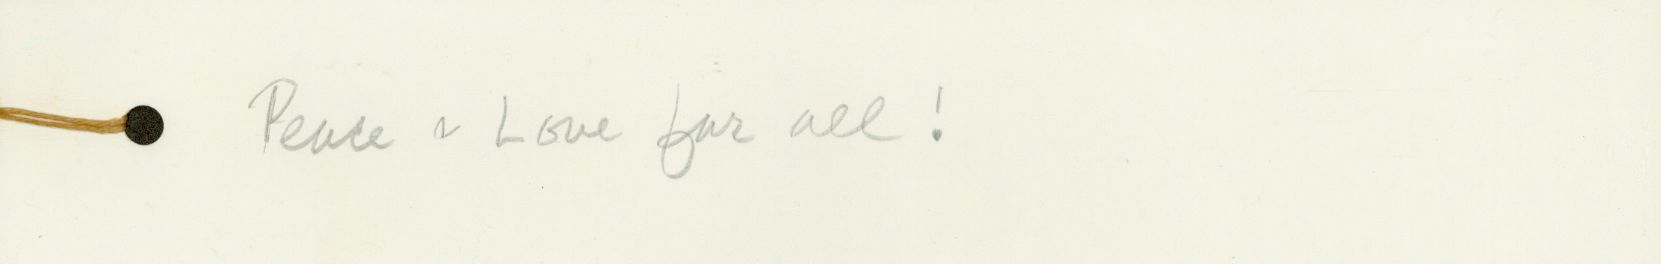 Peace & Love for all!